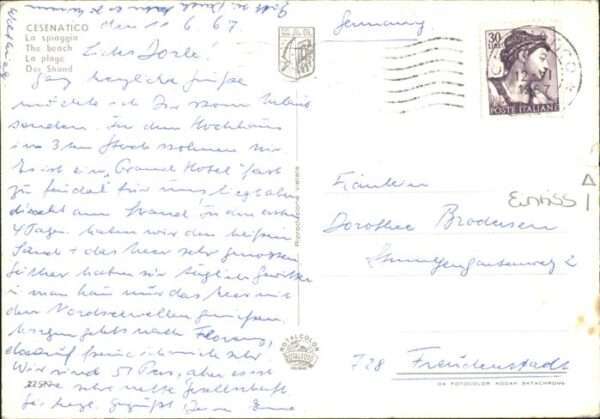 CESENATICO
La spiaggia
The beach
La plage
Der Strand
den 11. 6. 67.
Liebe Dorle!
Ganz herzliche Grüße
möchte ich Dir vom Urlaub
senden. In dem Hochhaus
im 3ten Stock wohnen wir
Es ist ein „Grand Hotel" fast
zu feudal für uns, liegt aber
direkt am Strand. In den ersten
4 Tagen haben wir den heißen
Sand + das Meer sehr genossen
seither haben wir täglich Gewitter
+ man kann nur das Meer mit
den Nordseewellen genießen.
Morgen gehts nach Florenz,
darauf freue ich mich sehr
Wir sind 51 Pers, aber es ist
eine sehr nette Gesellschaft
Sei herzl. gegrüßt,
Germany
30
LIRE
POSTE ITALIANE
12 VI
1967
Riproduzione vietata
Fräulein
Dorothee Brodersen
728 Freudenstadt
TOTALCOLOR
DA FOTOCOLOR KODAK EKTACHROME